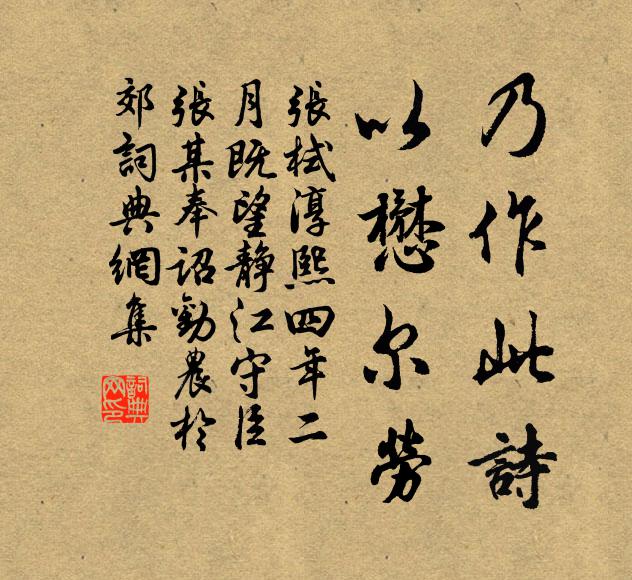 乃作此詩
以懋尔勞
張栻淳熙四年二
月既望静江守臣
張某奉詔勸農於
郊詞典網集
詞典
网印